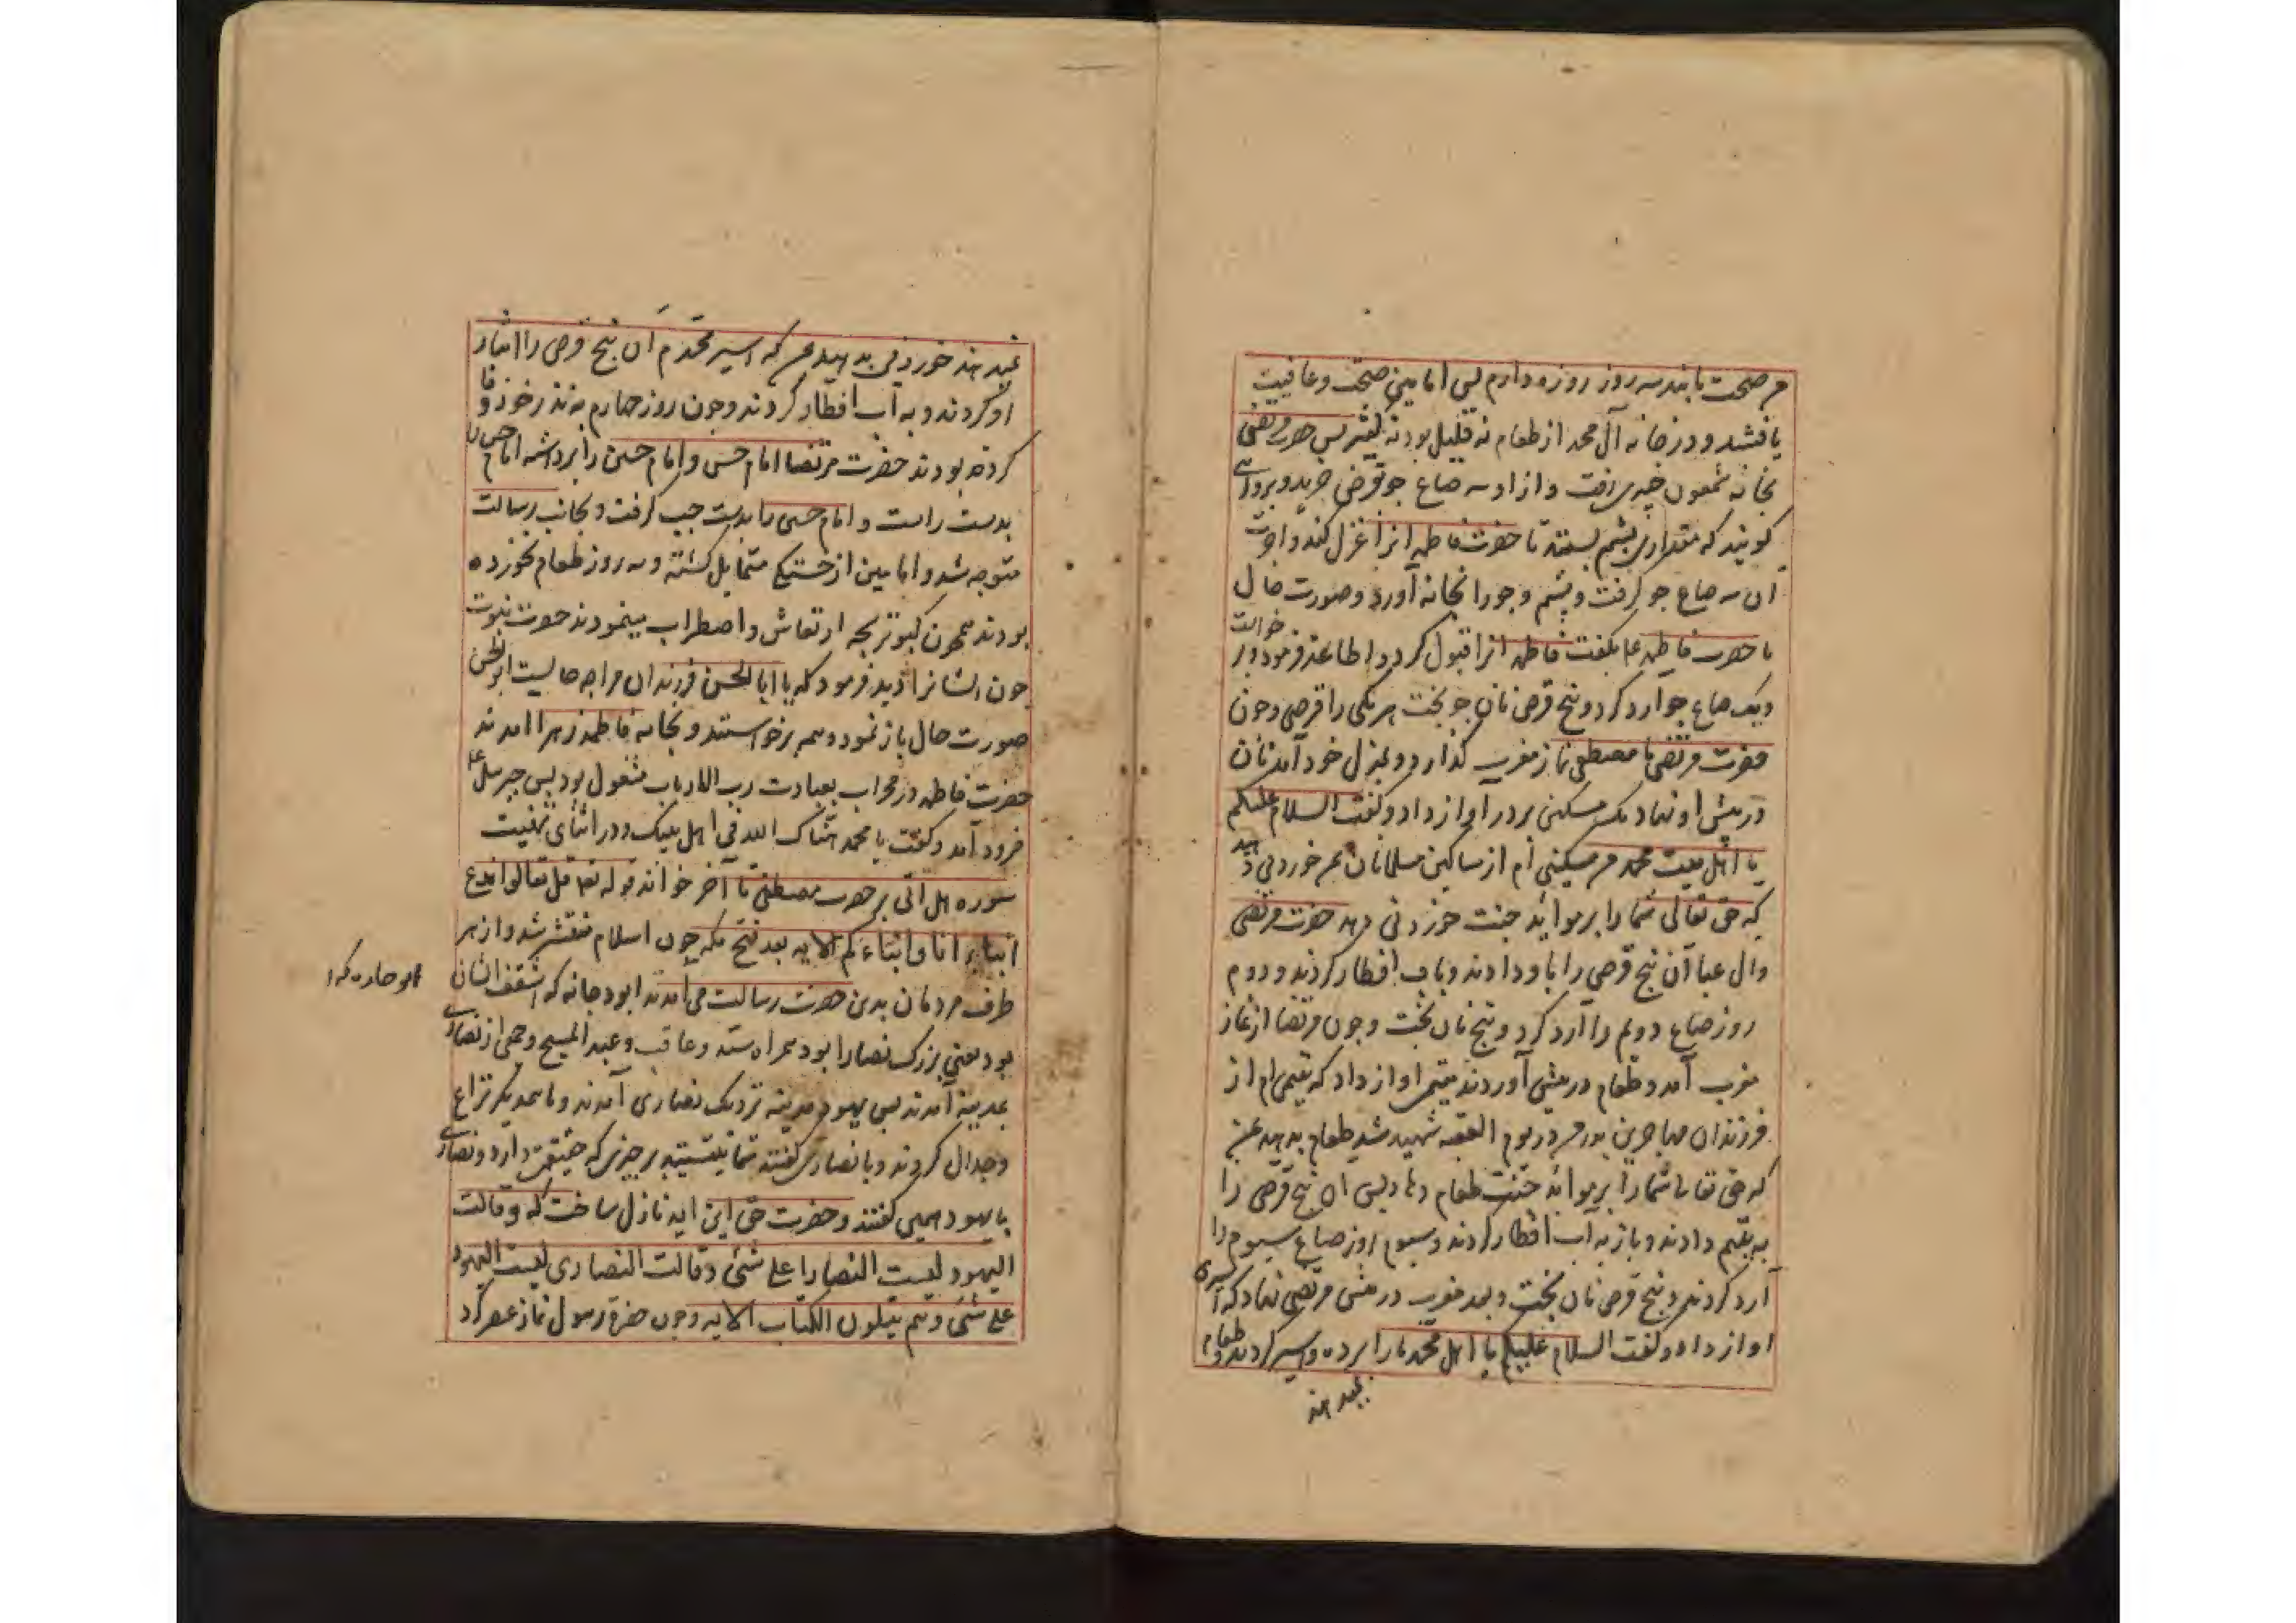 من صحت یابند سه روز روزه دارم پس امامین صحت و عافیت
یافتند و در خانه آل محمد از طعام نه قلیل بود نه کثیر پس حضرت مرتضی
بخانه شمعون خیبری رفت و از او سه صاع جو قرض خرید و بروایتی
کویند که مقداری پشم بستند تا حضرت فاطمه انرا غزل کند و اجرت
آن سه صاع جو گرفت و پشم و جو را بخانه آورد و صورت حال
با حضرت فاطمه بگفت فاطمه انرا قبول کرد و اطاعت فرمود و برخواست
ویک صاع جو ارد کرد و پنج قرص نان جو پخت هر یکی را قرصی و چون
حضرت مرتضی با مصطفی نماز مغرب کذارد و بمنزل خود آمد نان
در پیش او نهاد یک مسکینی بر در آواز داد و گفت السلام علیکم
یا اهل بیت محمد من مسکینی ام از مساکین مسلمانان مرا خوردنی دهید
که حق تعالی شما را بر موائد جنت خوردنی دهد حضرت مرتضی
وال عبا آن پنج قرص را باو دادند و باب افطار کردند و دوم
روز صاع دوم را ارد کرد و پنج نان پخت و چون مرتضا از نماز
مغرب آمد و طعام در پیش آوردند یتیمی اواز داد که یتیمی ام از
فرزندان مهاجرین پدرم در یوم العقبه شهید شد طعام بدهید
که حق تعالی شما را بر موائد جنت طعام دهاد پس ان پنج قرص را
به یتیم دادند و باز به آب افطار کردند و سیوم روز صاع سیوم را
آرد کردند و پنج قرص نان پخت و بعد مغرب در پیش مرتضی نهاد که اسیری
اواز داد و گفت السلام علیکم یا اهل محمد ما را برده و اسیر کردند و طعام
نمیدهند
نمیدهند خوردنی بدهید که اسیر محمدم ان پنج قرص را ایثار
او کردند و به آب افطار کردند و چون روز چهارم به نذر خود وفا
کرده بودند حضرت مرتضا امام حسن و امام حسین را برداشته امام حسن
بدست راست و امام حسین را بدست چپ کرفت و بجانب رسالت
متوجه شد و امامین از خستگی متمایل کشته و سه روز طعام نخورده
بودند همچون کبوتر بچه ارتعاش و اضطراب مینمودند حضرت نبوت
چون ایشانرا دید فرمود که یا ابا الحسن فرزندان مرا چه حالیست ابو الحسن
صورت حال باز نمود و هم برخواستند و بخانه فاطمه زهرا امدند
حضرت فاطمه در محراب بعبادت رب الارباب مشغول بود پس جبرئیل
فرود آمد و گفت یا محمد هناک الله فی اهل بیتک و در اثنای تهنیت
سوره هل اتی بر حضرت مصطفی تا آخر خواند قوله تعا قل تعالوا ندع
ابناءنا وابناءکم الایه بعد فتح مکه چون اسلام منتشر شد و از هر
طرف مردمان بدین حضرت رسالت می آمدند ابو دجانه که اسقف ایشان
ابو حارثه که
بود یعنی بزرگ نصارا بود همراه سید و عاقب و عبد المسیح و جمعی از نصاری
بمدینه آمدند پس یهود مدینه نزدیک نصاری آمدند و با همدیگر نزاع
وجدال کردند و با نصاری گفتند شما نیستید بر چیزی که حقیقتی دارد و نصاری
با یهود همین گفتند و حضرت حق این ایه نازل ساخت که وقالت
الیهود لیست النصارا علی شئ وقالت النصاری لیست الیهود
علی شئ وهم یتلون الکتاب الایه و چون حضرة رسول نماز عصر کرد